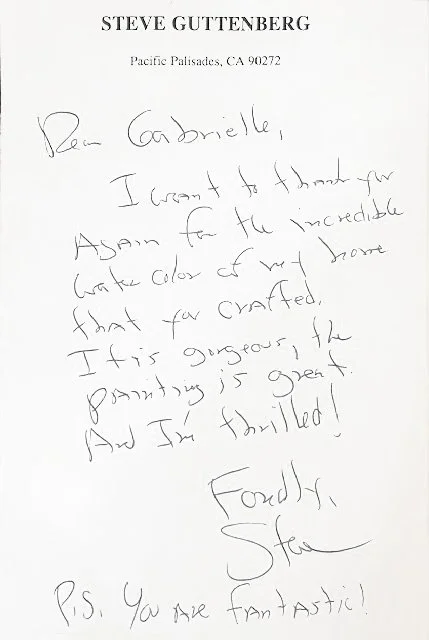 STEVE GUTTENBERG
Pacific Palisades, CA 90272
Dear Gabrielle,
I want to thank you
Again for the incredible
water color of my home
that you crafted.
It is gorgeous, the
painting is great.
And I'm thrilled!
Fondly,
Steve
P.S. You are fantastic!